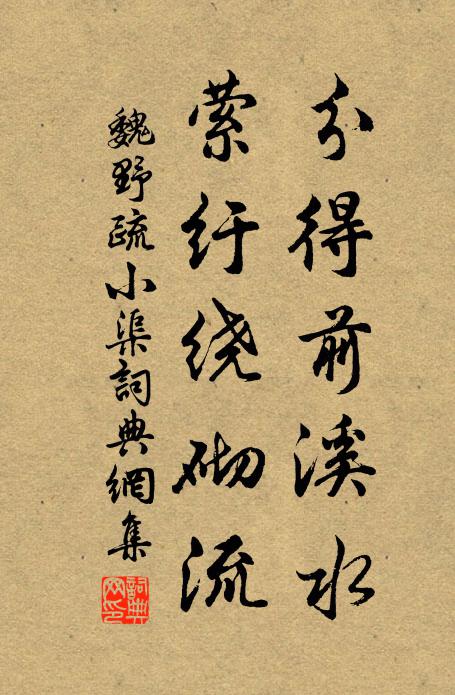 分得前溪水
萦纡绕砌流
魏野疏小渠詞典網集
詞典网印